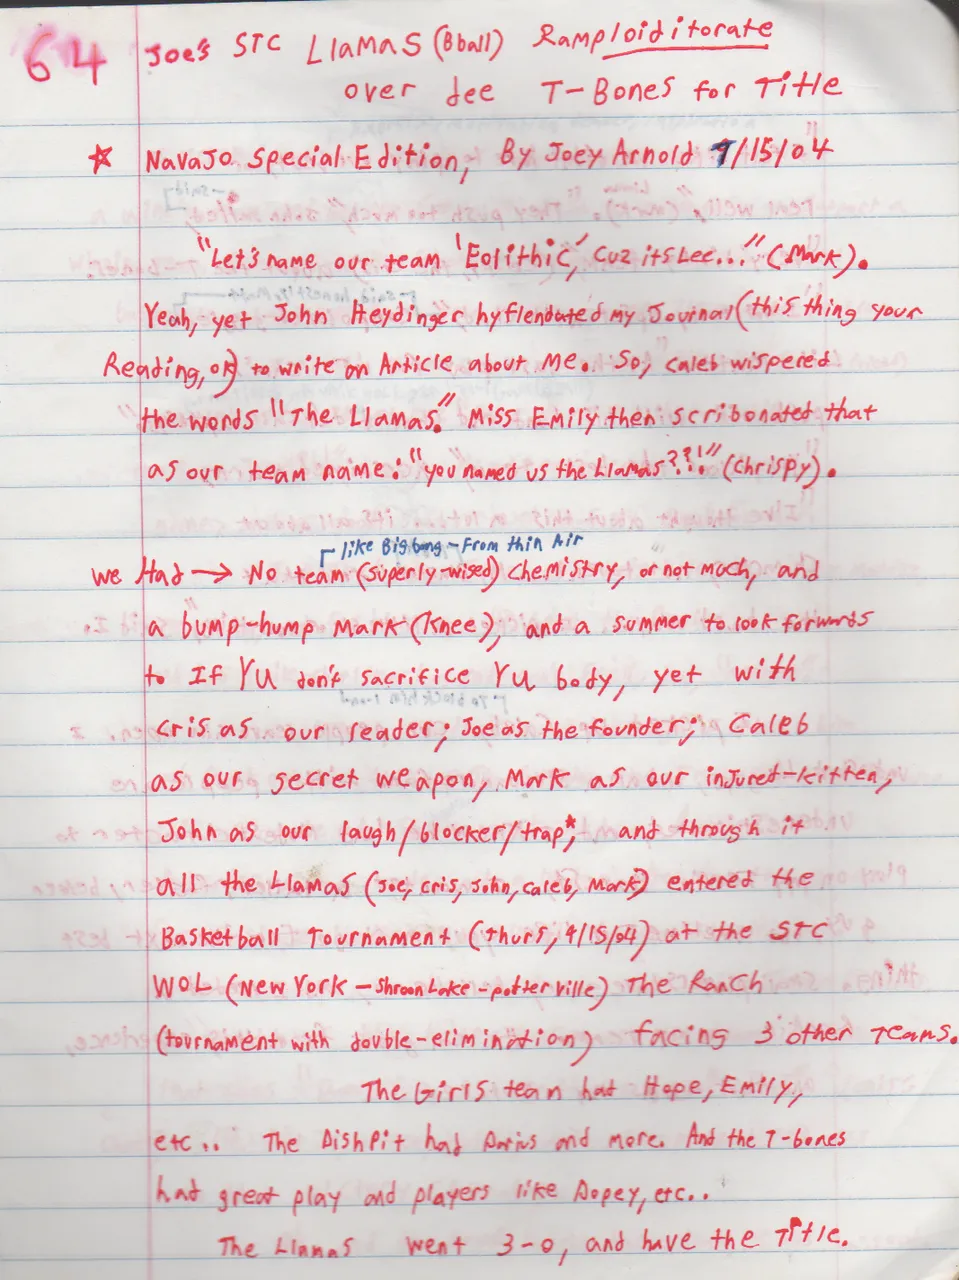 64 Joe's STC Llamas (Bball) Ramploiditorate
over dee T-Bones for Title
☆ Navajo Special Edition, By Joey Arnold 9/15/04
"Let's name our team 'Eolithic,' Cuz its Lee..." (Mark).
Yeah, yet John Heydinger hyflendated my Journal (this thing your
Reading, ok) to write on Article about me. So, Caleb wispered
the words "The Llamas." Miss Emily then scribonated that
as our team name: "you named us the Llamas??!" (Chrispy).
like Bigbang - From thin Air
we Had → No team (superly-wised) chemistry, or not much, and
a bump-hump Mark (Knee), and a summer to look forwards
to If YU don't sacrifice YU body, yet with
cris as our reader; Joe as the founder; Caleb
as our secret weapon, Mark as our injured-kitten,
John as our laugh/blocker/trap*; and through it
all the Llamas (Joe, cris, John, caleb, Mark) entered the
Basketball Tournament (Thurs, 9/15/04) at the STC
WOL (New York - Shroon Lake - potterville) The Ranch
(tournament with double-elimination) facing 3 other Teams.
The Girls team had Hope, Emily,
etc.. The DishPit had Darius and more. And the T-bones
had great play and players like Dopey, etc..
The Llamas went 3-0, and have the Title.